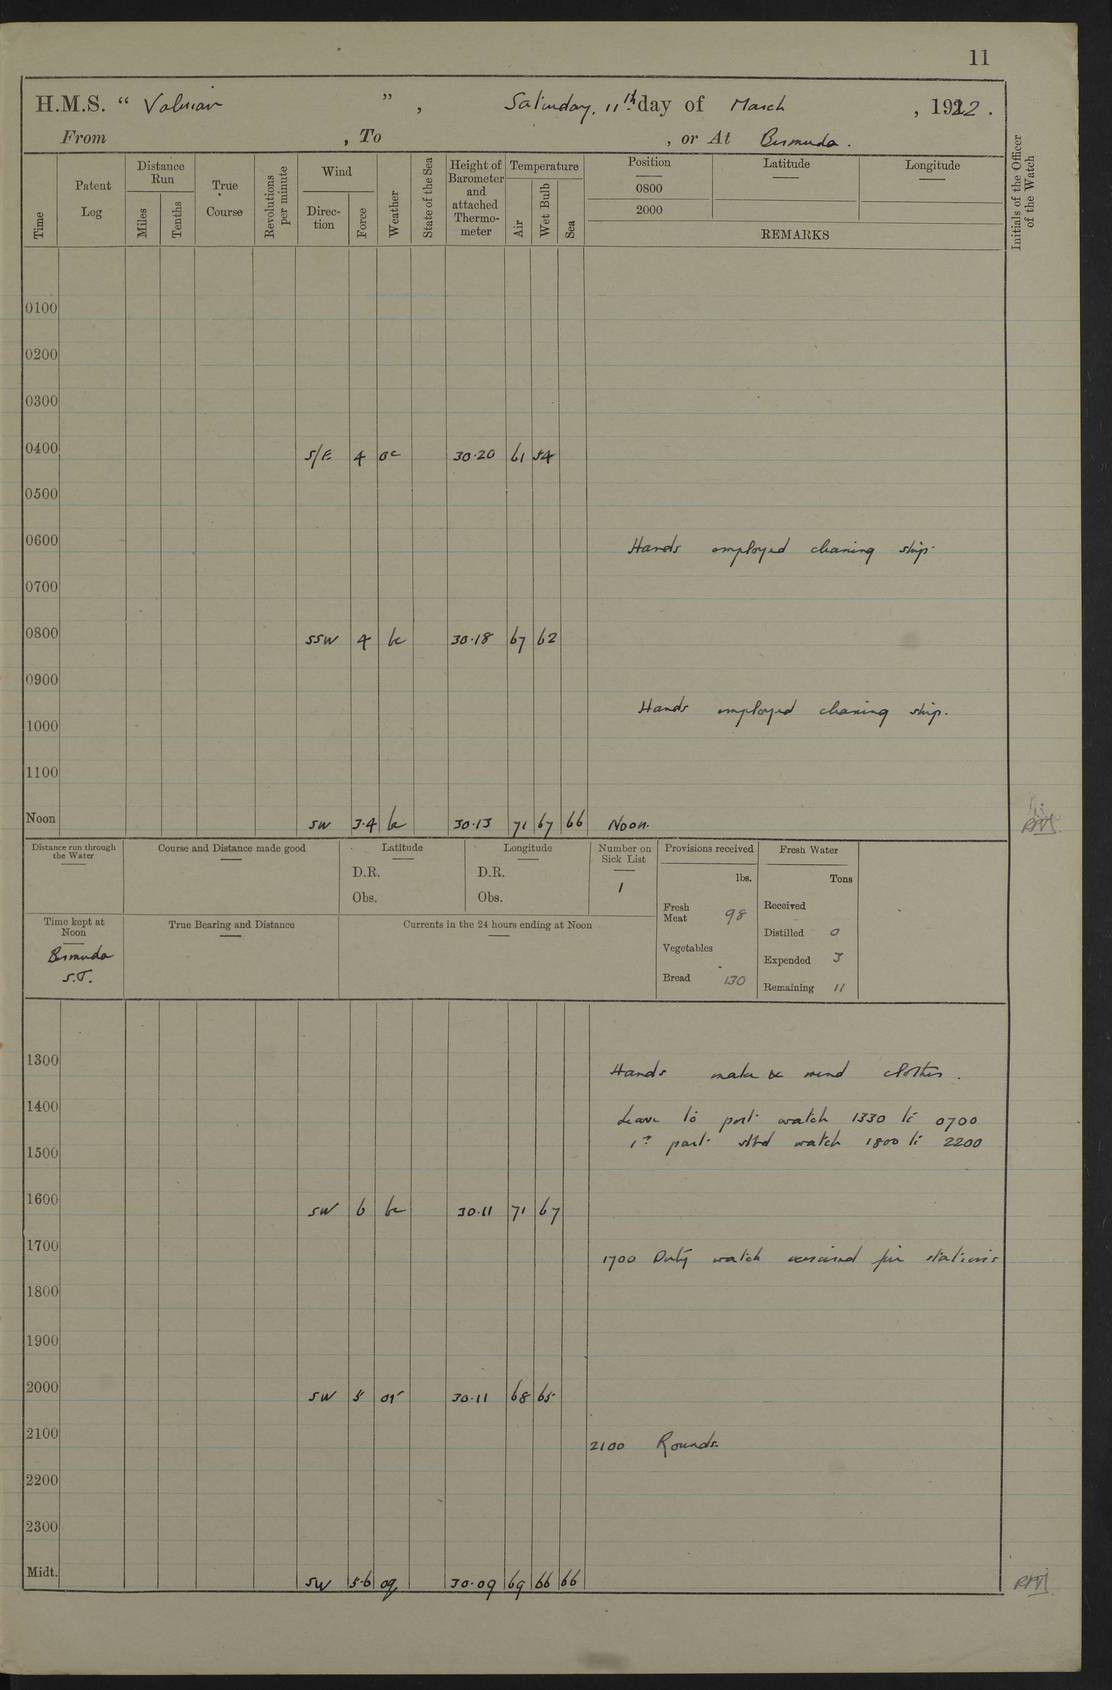 11
H.M.S. " Valerian " , Saturday, 11th day of March , 1922 .
From , To , or At Bermuda .
Time
Patent Log
Distance Run
Miles
Tenths
True Course
Revolutions per minute
Wind
Direction
Force
Weather
State of the Sea
Height of Barometer and attached Thermometer
Temperature
Air
Wet Bulb
Sea
Position
Latitude
Longitude
0800
2000
REMARKS
Initials of the Officer of the Watch
0100
0200
0300
0400 S/E 4 oc 30.20 61 54
0500
0600 Hands employed cleaning ship.
0700
0800 SSW 4 bc 30.18 67 62
0900
Hands employed cleaning ship.
1000
1100
Noon SW 3.4 bc 30.13 71 67 66 Noon.
Distance run through the Water
Course and Distance made good
Latitude
D.R.
Obs.
Longitude
D.R.
Obs.
Number on Sick List
1
Provisions received
lbs.
Fresh Meat 98
Vegetables
Bread 130
Fresh Water
Tons
Received
Distilled 0
Expended 3
Remaining 11
Time kept at Noon
Bermuda
S.T.
True Bearing and Distance
Currents in the 24 hours ending at Noon
1300 Hands make & mend clothes.
1400 Leave to port watch 1330 to 0700
1st part stbd watch 1800 to 2200
1500
1600 SW 6 bc 30.11 71 67
1700 1700 Duty watch exercised fire stations
1800
1900
2000 SW 5 or 30.11 68 65
2100 2100 Rounds.
2200
2300
Midt. SW 5.6 oq 30.09 69 66 66